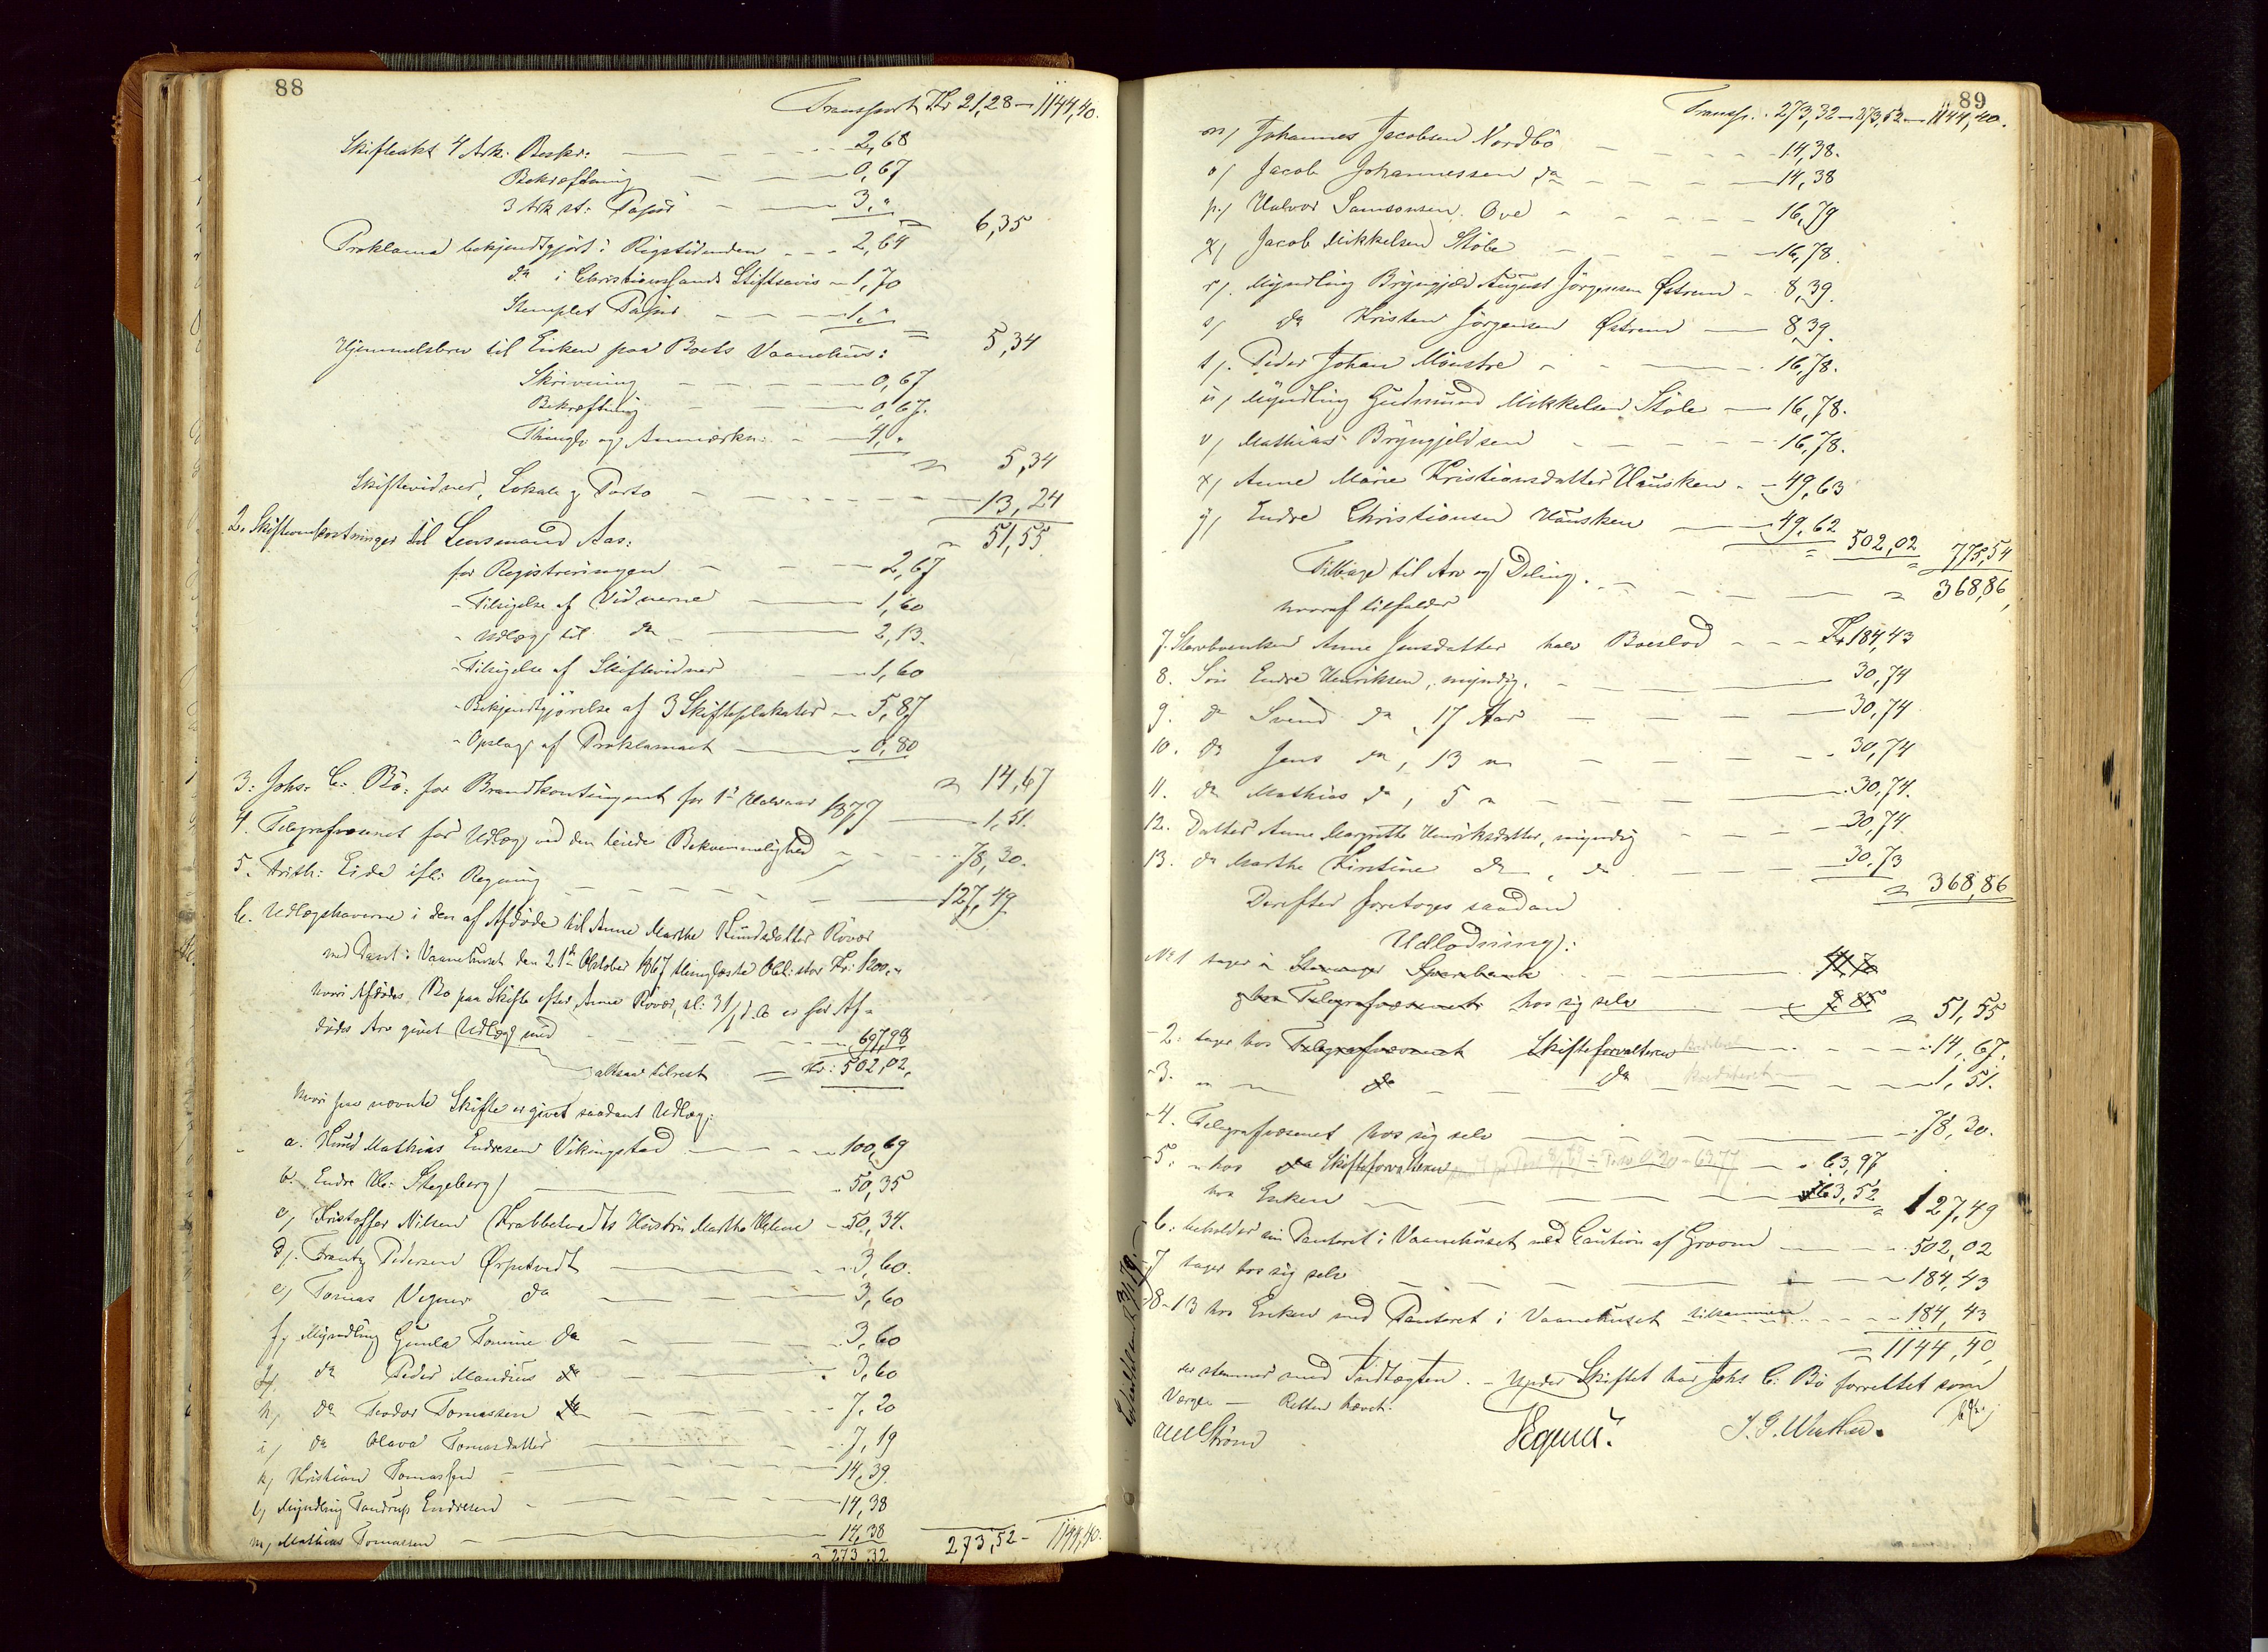 88
Transport Kr 21,28 — 1144,40.
Skifteakt 4 Ark: Beskr: — — — 2,68
Bekræftning — — 0,67
3 Ark st: Papir — — 3,"
= 6,35
Proklama bekjendtgjørt i Rigstidenden - - - 2,64
do i Christianssands Stiftsavis — 1,70
Stemplet Papir — — 1,"
= 5,34
Hjemmelsbrev til Enken paa Boets Vaanehus:
Skrivning — — — 0,67
Bekræftning — — 0,67.
Thingl: og Anmærkn: — 4,"
" 5,34
Skiftevidner, Lokale & Porto — — — 13,24
" 51,55
2. Skifteomkostninger til Lensmand Aas:
for Registreringen — — 2,67
- Tilsigelse af Vidnerne — 1,60
- Udlæg til do — 2,13.
- Tilsigelse af Skiftevidner — 1,60
- Bekjendtgjørelse af 3 Skifteplakater — 5,87
- Opslag af Proklamaet — 0,80
" 14,67
3: Johs: C: Bö: for Brandkontingent for 1ste Halvaar 1877 — 1,51.
4. Telegrafvæsenet for Udlæg ved den leiede Bekvemmelighed - - 78,30.
5. Frith: Eide ifl: Regning — — — 127,49
6. Udlægshaverne i den af Afdöde til Anne Marthe Knudsdatter Rövær
med Pant i Vaanehuset den 21de Oktober 1867 thinglæste Obl: stor Kr: 1200,"
hvori Afdödes Bo paa Skifte efter Anne Rövær, sl: 31/1 d.A. er for Af-
dödes Arv givet Udlæg med — — — 697,98
altsaa tilrest = Kr: 502,02.
hvori paa nævnte Skifte er givet saadant Udlæg:
a. Knud Mathias Endresen Vikingstad — — 100,69
b. Endre Ol: Stegeberg — — 50,35
c, Kristoffer Nilsen Krabbetvedts Hustru Marthe Helene — 50,34.
d,. Frantz Pedersen Ørpetvedt — 3,60.
e, Tomas Vegner do — 3,60
f, Myndling Gunla Tomine do — 3,60
g, do Peder Mandius do — 3,60
h, do Teodor Tomassen — 7,20
i, do Olava Tomasdatter — 7,19
k, Kristian Tomassen — 14,39
l, Myndling Tandrup Endresen — 14,38
m, Mathias Tomassen — 14,38
" 273,32 273,52 - 1144,40.
89
Transp. . 273,32 — 273,52 — 1144,40.
n, Johannes Jacobsen Nordbö — 14,38.
o, Jacob Johannessen do — 14,38
p, Halvor Samsonsen Ove — 16,79
q, Jacob Mikkelsen Stöle — 16,78.
r,. Myndling Bryngjeld August Jörgensen Østrem - 8,39.
s, do Kristen Jörgensen Østrem — 8,39.
t,. Peder Johan Mönstre — 16,78.
u, Myndling Gudmund Mikkelsen Stöle — 16,78.
v, Mathias Bryngjeldsen — 16,78.
x, Anne Marie Kristiansdatter Hausken — 49,63
y, Endre Christiansen Hausken — 49,62
= 502,02 = 775,54
Tilbage til Arv og Deling. — — " 368,86
hvoraf tilfalder
7. Stervboenken Anne Jensdatter halv Boeslod - - - Kr 184,43
8. Sön Endre Henriksen, myndig. — 30,74
9. do Svend do, 17 Aar — 30,74
10. do Jens do, 13 " — 30,74
11. do Mathias do, 5 " — 30,74.
12. Datter Anne Margrethe Henriksdatter, myndig — 30,74
13. do Marthe Kirstine do, do — 30,73
" 368,86
Derefter foretoges saadan
Udlodning:
No 1 tager i Stavanger Sparebank —
Telegrafvæsenet hos sig selv —
" 51,55
- 2: tager hos Telegrafvæsenet Skifteforvalteren — 14,67.
- 3. " " do do — 1,51.
- 4. Telegrafvæsenet hos sig selv — 78,30.
- 5: " hos do Skifteforvalteren — 63,97
hos Enken — 63,52 " 127,49
- 6: beholder sin Panteret i Vaanehuset med Caution af Groom — 502,02
- 7 tager hos sig selv — 184,43
- 8-13 hos Enken med Panteret i Vaanehuset tilsammen — 184,43
= 1144,40,
der stemmer med Indtægten. - Under Skiftet har Johs C: Bö forrettet som
Værge — Retten hævet.